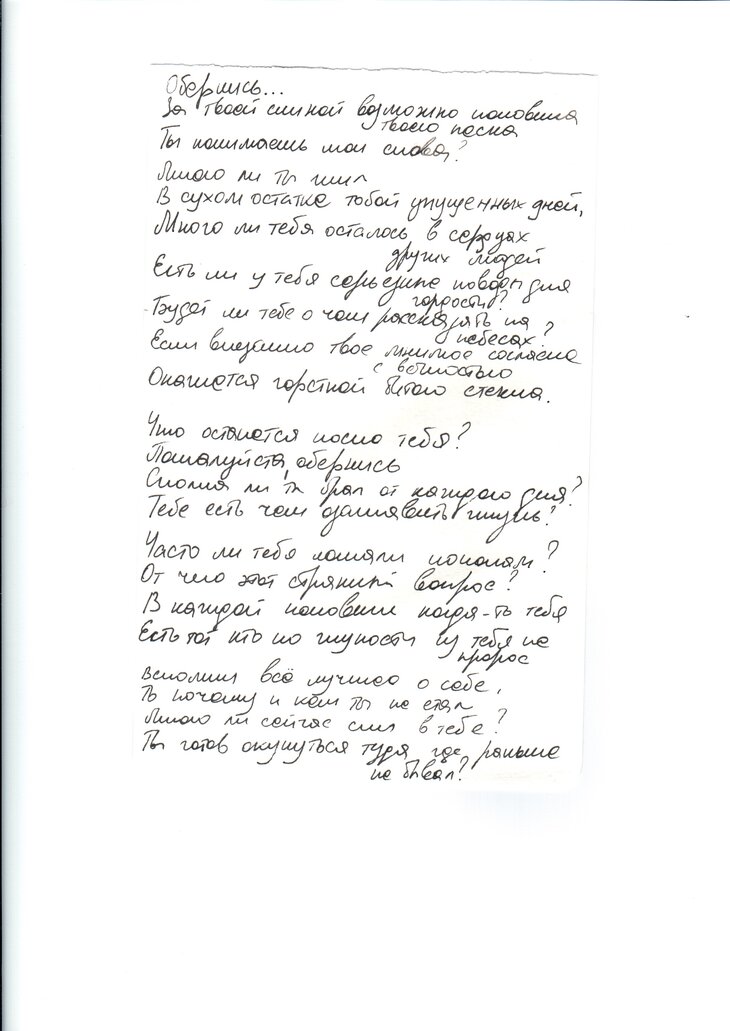 Обернись...
За твоей спиной возможно половина
твоего паска
Ты понимаешь мои слова?
Много ли ты жил
В сухом остатке тобой упущенных дней,
Много ли тебя осталось в сердцах
других людей
Есть ли у тебя серьезные поводы для
гордости?
Будет ли тебе о чем рассказать на
небесах?
Если внезапно твое мнимое согласие
с вечностью
Окажется горсткой битого стекла.
Что останется после тебя?
Пожалуйста, обернись
Сполна ли ты брал от каждого дня?
Тебе есть чем озаглавить жизнь?
Часто ли тебя ломали пополам?
От чего этот странный вопрос?
В каждой половине когда-то тебя
Есть тот кто по глупости из тебя не
пророс
Вспомни всё лучшее о себе,
То почему и кем ты не стал
Много ли сейчас сил в тебе?
Ты готов окунуться туда, где раньше
не бывал?